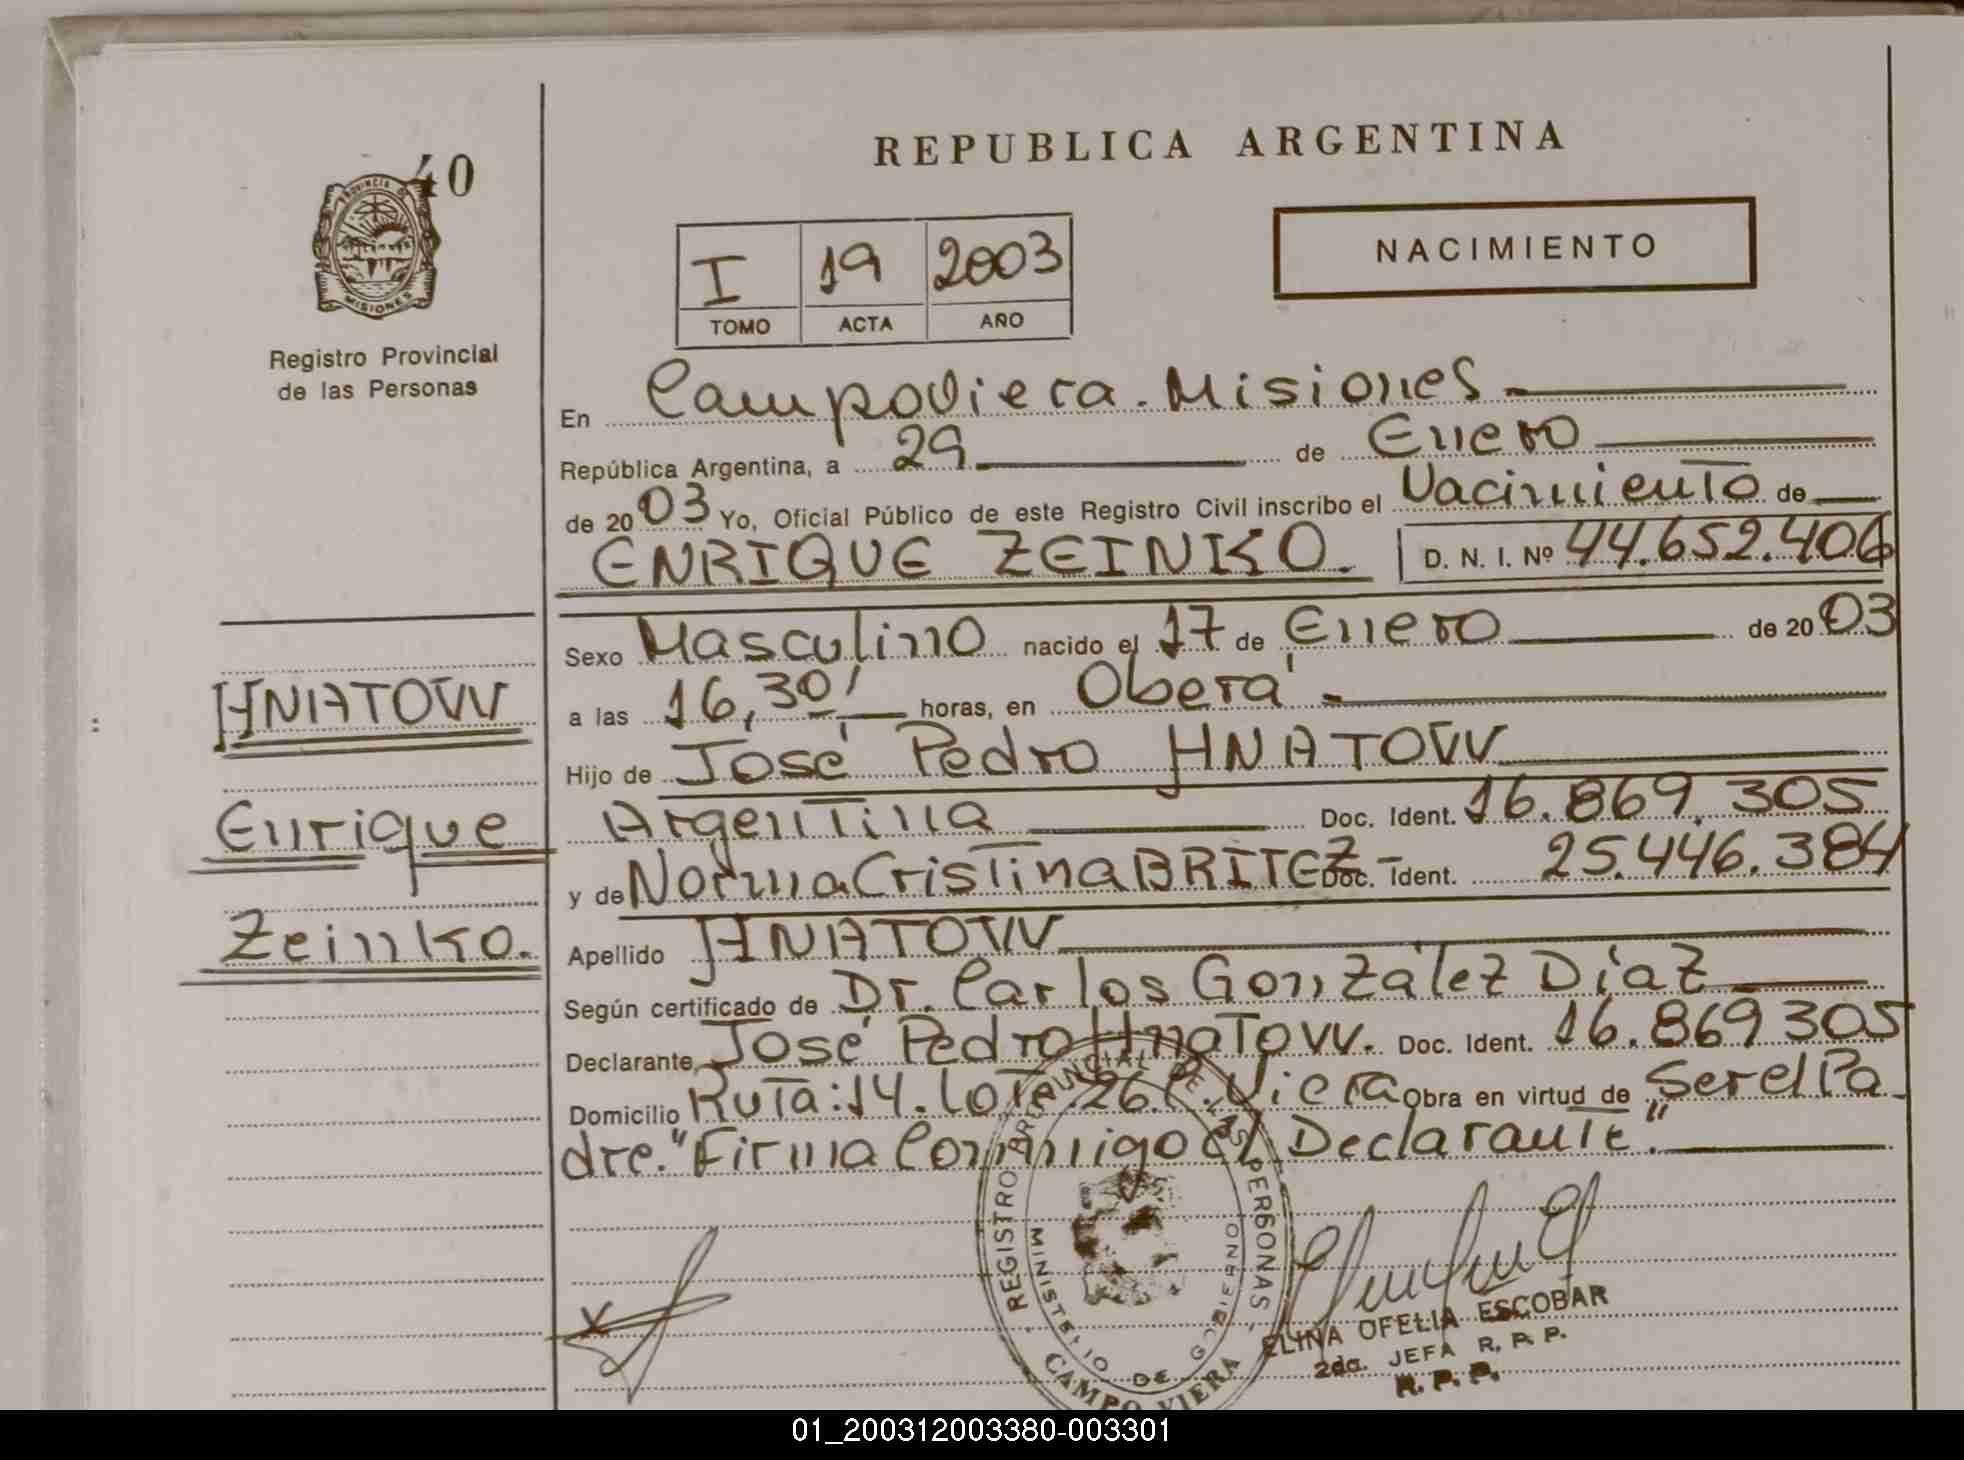 40
PROVINCIA DE
MISIONES
Registro Provincial
de las Personas
HNATOW
Enrique
Zeinko.
REPUBLICA ARGENTINA
I 19 2003
TOMO ACTA AÑO
NACIMIENTO
En Campo Viera. Misiones
República Argentina, a 29 de Enero
de 2003 Yo, Oficial Público de este Registro Civil inscribo el Nacimiento de
ENRIQUE ZEINKO. D. N. I. Nº 44.652.406
Sexo Masculino nacido el 17 de Enero de 2003
a las 16,30' horas, en Oberá
Hijo de José Pedro HNATOW
Argentina Doc. Ident. 16.869.305
y de Norma Cristina BRITEZ Doc. Ident. 25.446.384
Apellido HNATOW
Según certificado de Dr. Carlos González Díaz
Declarante, José Pedro Hnatow. Doc. Ident. 16.869305
Domicilio Ruta:14. Lote:26.C. Viera Obra en virtud de Ser el Pa
dre. "Firma Conmigo el Declarante".
REGISTRO PROVINCIAL DE LAS PERSONAS
MINISTERIO DE GOBIERNO
CAMPO VIERA
ELINA OFELIA ESCOBAR
2da. JEFA R. P. P.
R. P. P.
01_200312003380-003301